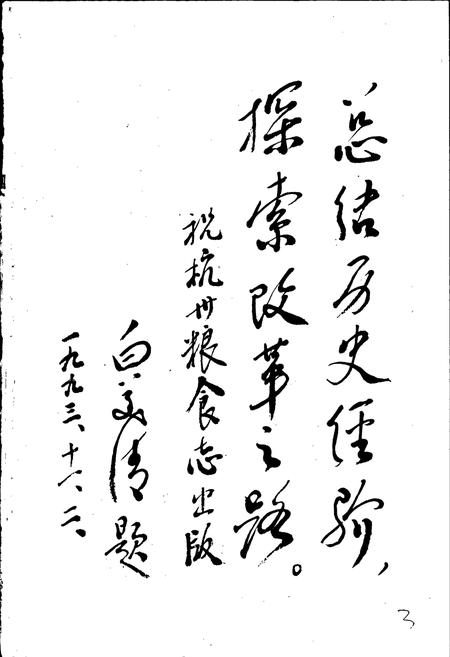 总结历史经验，
探索改革之路。
祝杭州粮食志出版
白美清题
一九九三、十一、二、
3